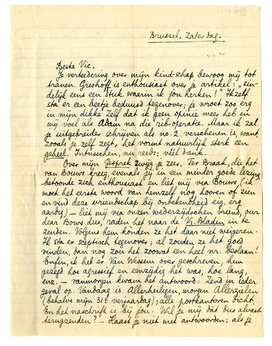 Brussel, Zaterdag.
Beste Vic,
Je verhandeling over mijn kindschap bewoog mij tot
tranen. Greshoff is enthousiast over je artikel: "ein-
delijk eens een stuk waarin ik jou herken!" Ikzelf
sta er een beetje beduusd tegenover; je wroet zoo erg
in mijn dikke Zelf dat ik geen opinie meer heb in
mij over wat Adam na die rib-operatie. Maar ik zal
je uitgebreider schrijven als no. 2. verschenen is, want
zooals je zelf zegt, het vormt natuurlijk sterk een
geheel. Intusschen, nu reeds, veel dank!
Over mijn Gesprek zwijg je zoo. Ter Braak, die het
van Bouws kreeg, evenals jij in een minder goede lezing,
betoonde zich enthousiast en liet mij van Bouws (ik
moet het eerste woord van hemzelf nog hooren of zien
en vind deze vriendschap bij onbekendheid erg
aardig) — liet mij van onzen wederzijdschen vriend, den
heer Bouws dus, raden het naar de Vr. Bladen in te
zenden. Volgens hem konden ze het daar niet weigeren.
Ik sta er skeptisch tegenover; al zouden ze het goed
vinden, dan nog zou het zoowat een heel nr. beslaan!
Enfin, ik heb er Van Wessem over geschreven, hem
gezegd hoe agressief en eenzijdig het was, hoe lang,
enz. — vanmorgen kwam het antwoord: zend in ieder
geval op. Vandaag is Allerheiligen morgen Allerzielen
(behalve mijn 31e verjaardag); alle postkantoren dicht.
En het naschrift is bij jou. Wil je mij dat bus alvast
terugzenden? — Haast je niet met antwoorden; als je